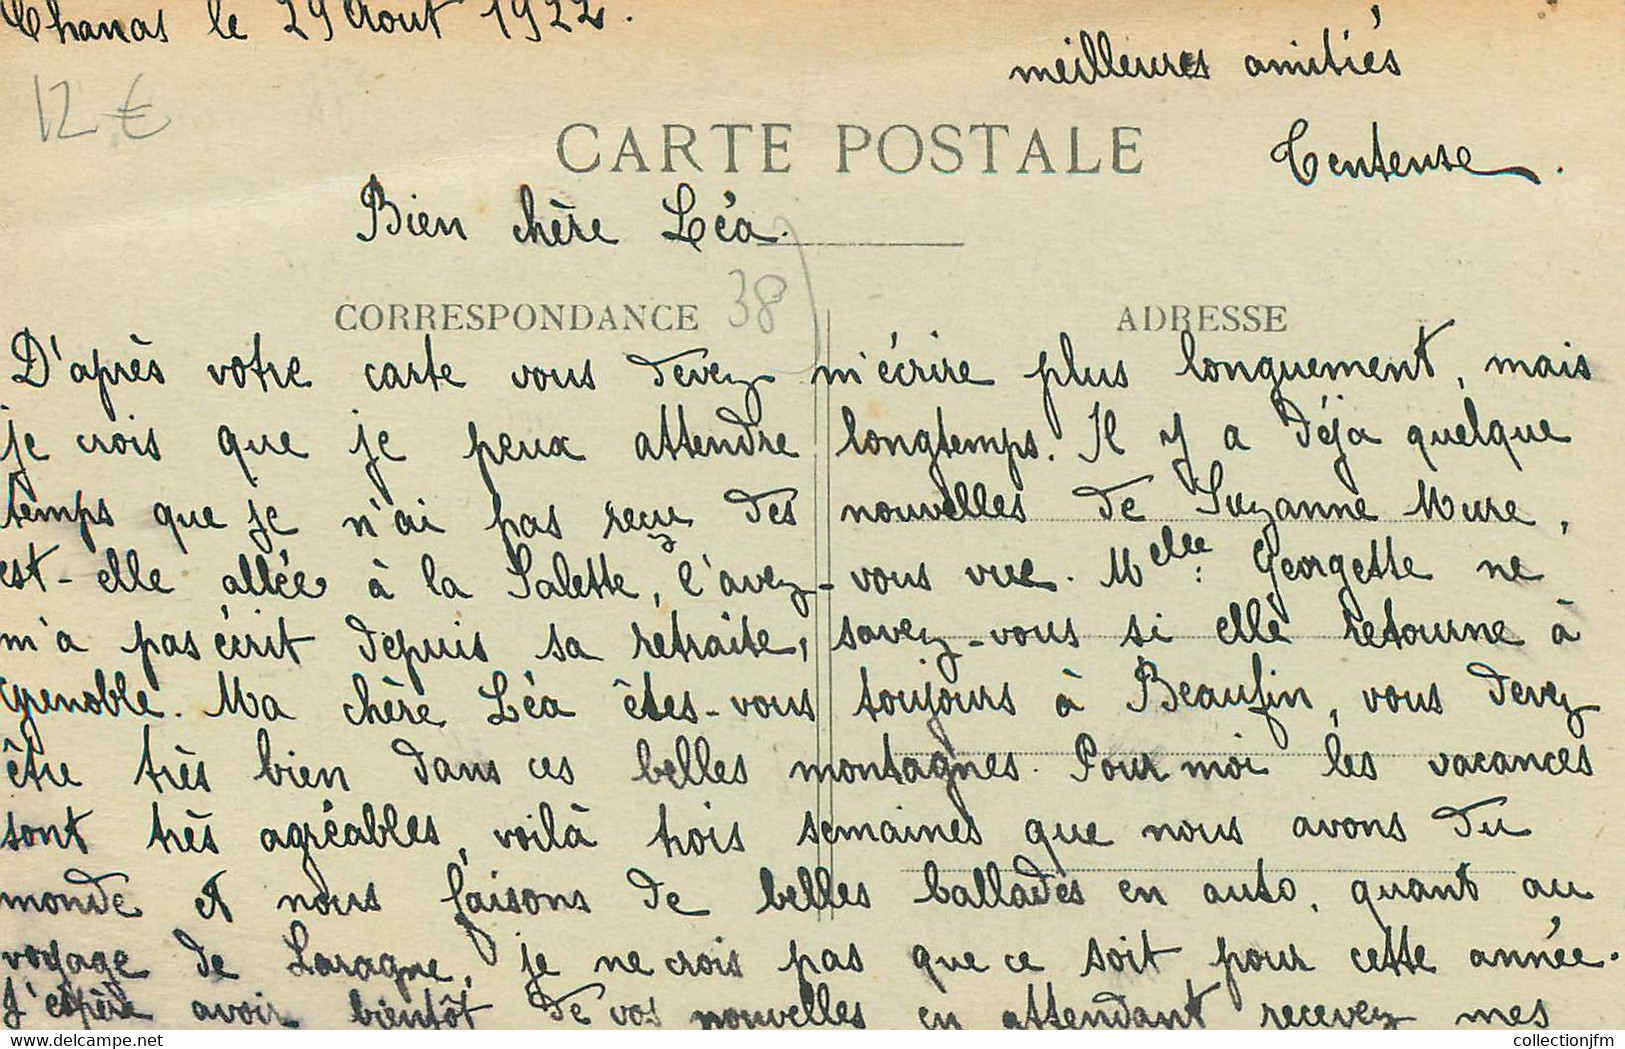 Chanas le 29 Aout 1922.
12 €
CARTE POSTALE
Bien chère Léa.
38
CORRESPONDANCE
ADRESSE
D'après votre carte vous devez m'écrire plus longuement, mais
je crois que je peux attendre longtemps. Il y a déja quelque
temps que je n'ai pas reçu des nouvelles de Suzanne Mure,
est-elle allée à la Salette, l'avez-vous vue. Melle: Georgette ne
m'a pas écrit depuis sa retraite, savez-vous si elle retourne à
Grenoble. Ma chère Léa êtes-vous toujours à Beaufin, vous devez
être très bien dans ces belles montagnes. Pour moi les vacances
sont très agréables, voilà trois semaines que nous avons du
monde et nous faisons de belles ballades en auto, quant au
voyage de Laragne, je ne crois pas que ce soit pour cette année.
J'espère avoir bientôt de vos nouvelles en attendant recevez mes
meilleures amitiés
collectionjfm